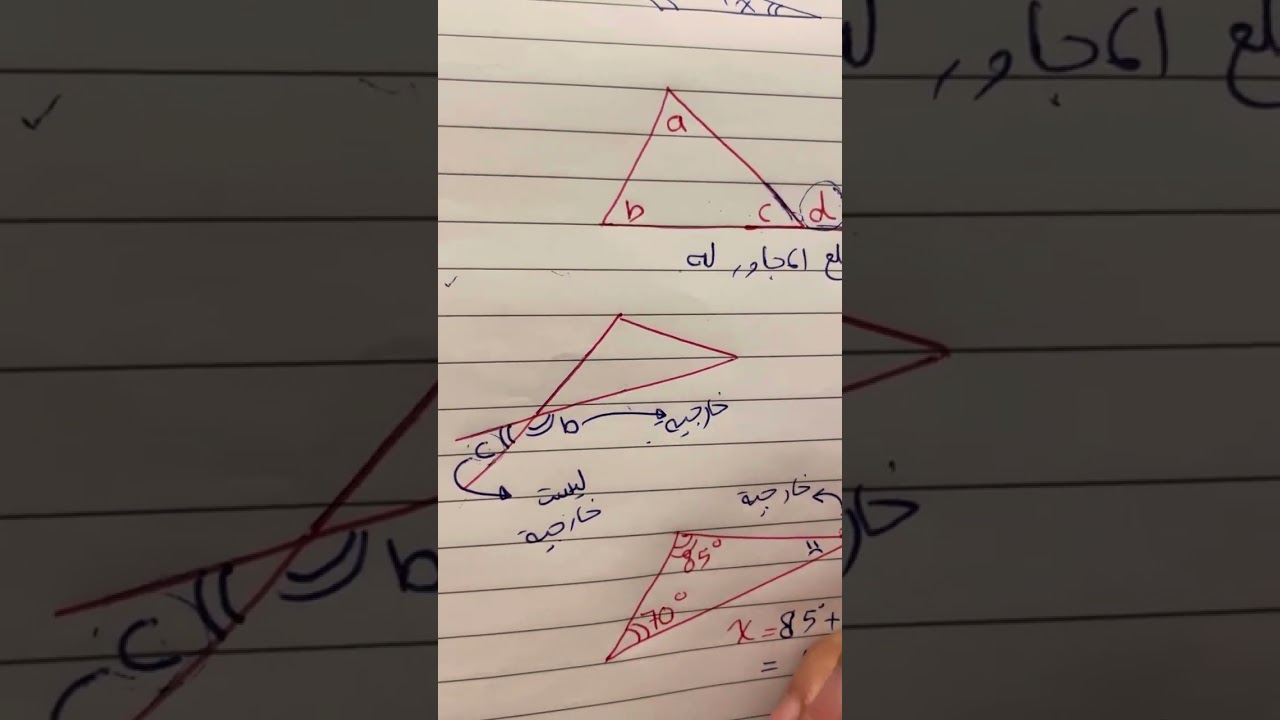 x
a
b c d
المجاور له
b خارجية
c
ليست
خارجية
خارجية
85°
70°
x = 85° +
=